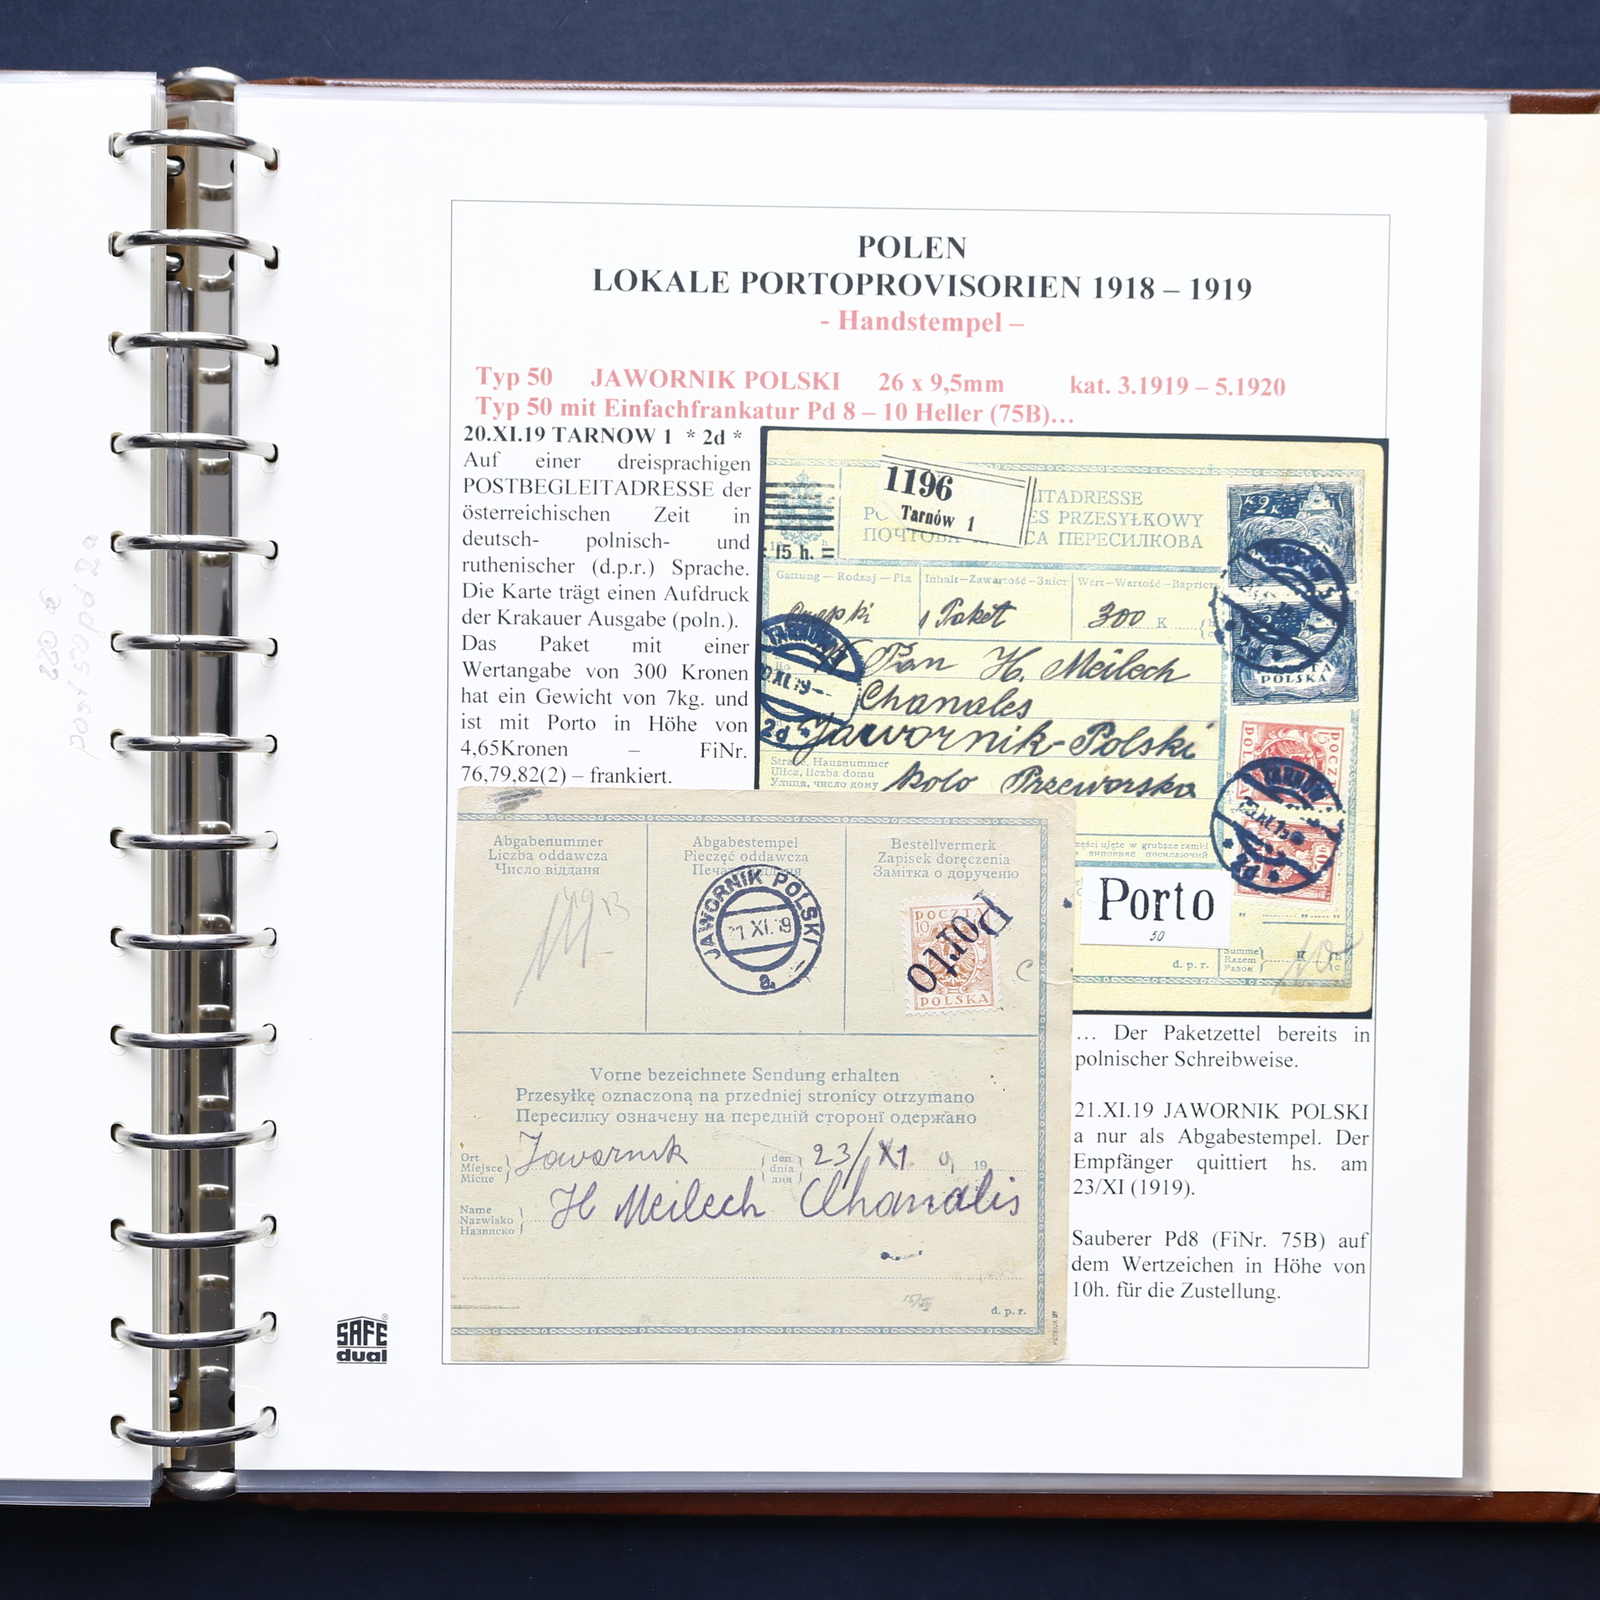 POLEN
LOKALE PORTOPROVISORIEN 1918 – 1919
- Handstempel –
Typ 50 JAWORNIK POLSKI 26 x 9,5mm kat. 3.1919 – 5.1920
Typ 50 mit Einfachfrankatur Pd 8 – 10 Heller (75B)…
20.XI.19 TARNOW 1 * 2d *
Auf einer dreisprachigen
POSTBEGLEITADRESSE der
österreichischen Zeit in
deutsch- polnisch- und
ruthenischer (d.p.r.) Sprache.
Die Karte trägt einen Aufdruck
der Krakauer Ausgabe (poln.).
Das Paket mit einer
Wertangabe von 300 Kronen
hat ein Gewicht von 7kg. und
ist mit Porto in Höhe von
4,65Kronen – FiNr.
76,79,82(2) – frankiert.
1196
Tarnów 1
ITADRESSE
ES PRZESYŁKOWY
ПОЧТОВА СА ПЕРЕСИЛКОВА
15 h.
Gattung — Rodzaj — Inhalt — Zawartość — Зміст Wert — Wartość —
1 Paket 300 K
Pan H. Meilech
Chanales
Jawornik-Polski
Strasse, Hausnummer
Ulica, liczba domu
Улица, число дому
koło Przeworska
TARNOW 1
XI.19
2d
K2
POLSKA
Porto
50
Summe
Razem
Разом
d. p. r.
Abgabenummer
Liczba oddawcza
Число віддання
Abgabestempel
Pieczęć oddawcza
Bestellvermerk
Zapisek doręczenia
Замітка о дорученю
JAWORNIK POLSKI
21 XI.19
a.
POCZTA
10
POLSKA
Porto
Vorne bezeichnete Sendung erhalten
Przesyłkę oznaczoną na przedniej stronicy otrzymano
Пересилку означену на передній стороні одержано
Ort
Miejsce
Місце
Jawornik
den
dnia
дня
23/XI 19
Name
Nazwisko
Назвиско
H Meilech Chanalis
d. p. r.
… Der Paketzettel bereits in
polnischer Schreibweise.
21.XI.19 JAWORNIK POLSKI
a nur als Abgabestempel. Der
Empfänger quittiert hs. am
23/XI (1919).
Sauberer Pd8 (FiNr. 75B) auf
dem Wertzeichen in Höhe von
10h. für die Zustellung.
SAFE
dual